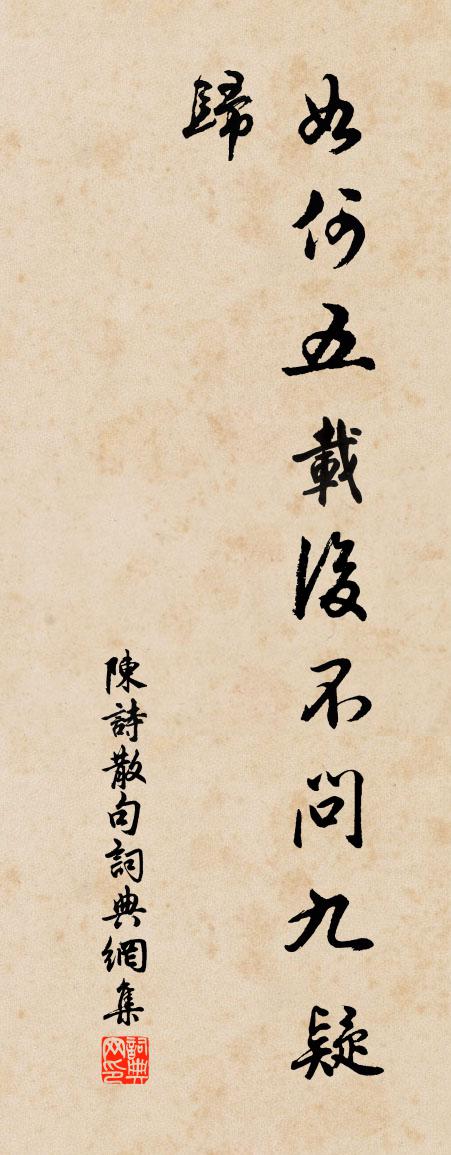 如何五載後不問九疑
歸
陳詩散句詞典網集
詞典
网印